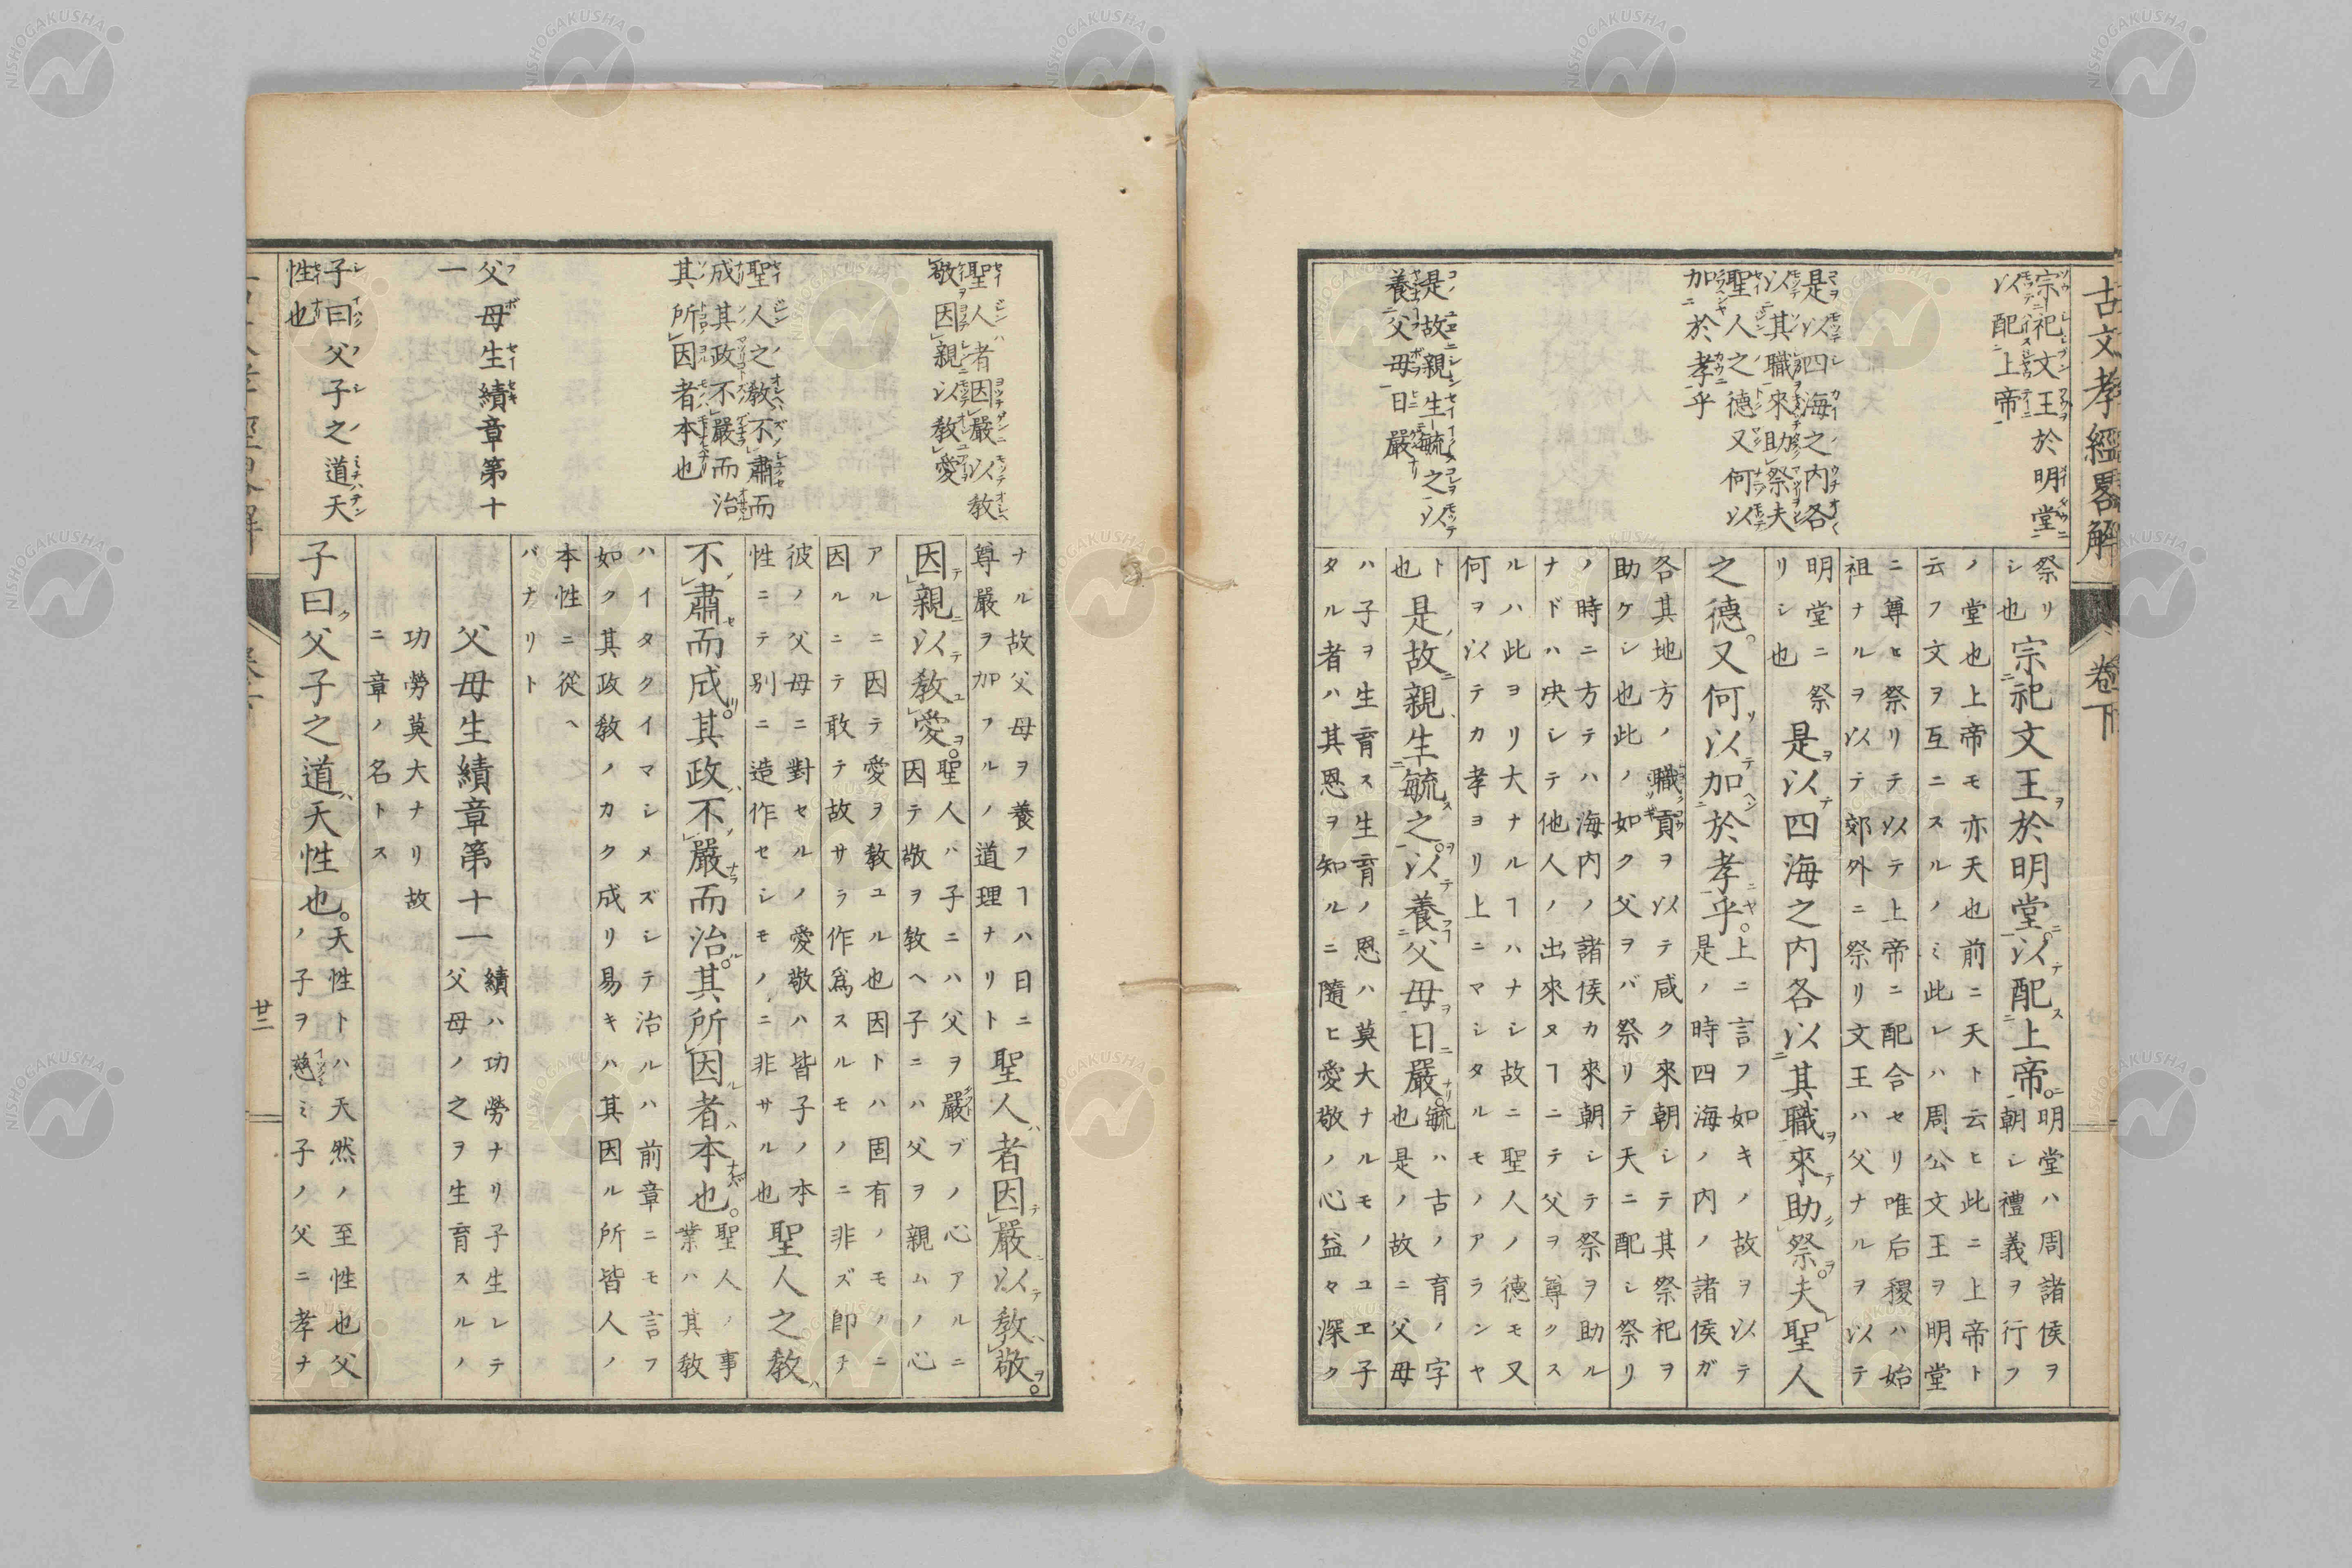 古文孝經畧解
卷下
宗祀文王於明堂
以配上帝
是以四海之内各
以其職來助祭夫
聖人之德又何以
加於孝乎
是故親生毓之以
養父母日嚴
祭リシ也宗祀文王於明堂以配上帝明堂ハ周諸侯ヲ朝シ禮義ヲ行フ
ノ堂也上帝モ亦天也前ニ天ト云ヒ此ニ上帝ト云フ文ヲ互ニスルノミ此レハ周公文王ヲ明堂
ニ尊ヒ祭リテ以テ上帝ニ配合セリ唯后稷ハ始祖ナルヲ以テ郊外ニ祭リ文王ハ父ナルヲ以テ
明堂ニ祭リシ也是以四海之内各以其職來助祭夫聖人
之德又何以加於孝乎上ニ言フ如キノ故ヲ以テ是ノ時四海ノ内ノ諸侯ガ
各其地方ノ職貢ヲ以テ咸ク來朝シテ其祭祀ヲ助ケシ也此ノ如ク父ヲバ祭リテ天ニ配シ祭リ
ノ時ニ方テハ海内ノ諸侯カ來朝シテ祭ヲ助ルナドハ决シテ他人ノ出來ヌヿニテ父ヲ尊クス
ルハ此ヨリ大ナルヿハナシ故ニ聖人ノ德モ又何ヲ以テカ孝ヨリ上ニマシタルモノアランヤ
ト也是故親生毓之以養父母日嚴毓ハ古ノ育ノ字也是ノ故ニ父母
ハ子ヲ生育ス生育ノ恩ハ莫大ナルモノユヱ子タル者ハ其恩ヲ知ルニ隨ヒ愛敬ノ心益々深ク
聖人者因嚴以教
敬因親以教愛
聖人之教不肅而
成其政不嚴而治
其所因者本也
父母生績章第十
一
子曰父子之道天
性也
ナル故父母ヲ養フヿハ日ニ尊嚴ヲ加フルノ道理ナリト聖人者因嚴以教敬
因親以教愛聖人ハ子ニハ父ヲ嚴ブノ心アルニ因テ敬ヲ教ヘ子ニハ父ヲ親ムノ心
アルニ因テ愛ヲ教ユル也因トハ固有ノモノニ因ルニテ敢テ故サラ作爲スルモノニ非ズ即チ
彼ノ父母ニ對セルノ愛敬ハ皆子ノ本性ニテ別ニ造作セシモノニ非サル也聖人之教
不肅而成其政不嚴而治其所因者本也聖人ノ事業ハ其教
ハイタクイマシメズシテ治ルハ前章ニモ言フ如ク其政教ノカク成リ易キハ其因ル所皆人ノ
本性ニ從ヘバナリト
父母生績章第十一績ハ功勞ナリ子生レテ父母ノ之ヲ生育スルノ
功勞莫大ナリ故ニ章ノ名トス
子曰父子之道天性也天性トハ天然ノ至性也父ノ子ヲ慈ミ子ノ父ニ孝ナ
廿二